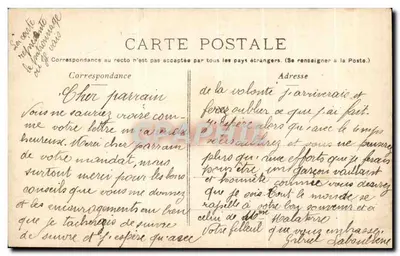 La carte
représente
le patronage
où je vais
CARTE POSTALE
Correspondance au recto n'est pas acceptée par tous les pays étrangers. (Se renseigner à la Poste.)
Correspondance
Cher parrain
Vous ne saurez croire com-
me votre lettre m'a rendu
heureux. Merci cher parrain
de votre mandat, mais
surtout merci pour les bons
conseils que vous me donnez
et les encouragements au bien
que je tacherais de suivre
de suivre et j'espère qu'avec
Adresse
de la volonté j'arriverais et
ferez oublier ce que j'ai fait.
J'espère alors qu'avec le temps
et vous ne
plus qu'aux efforts que je fais
pour être un garçon vaillant
et honnête comme vous désirez
que je sois. Tout le monde se
rapelle à votre bon souvenir et à
celui de Mme Malaterre
Votre filleul que vous embrasse
Gabriel